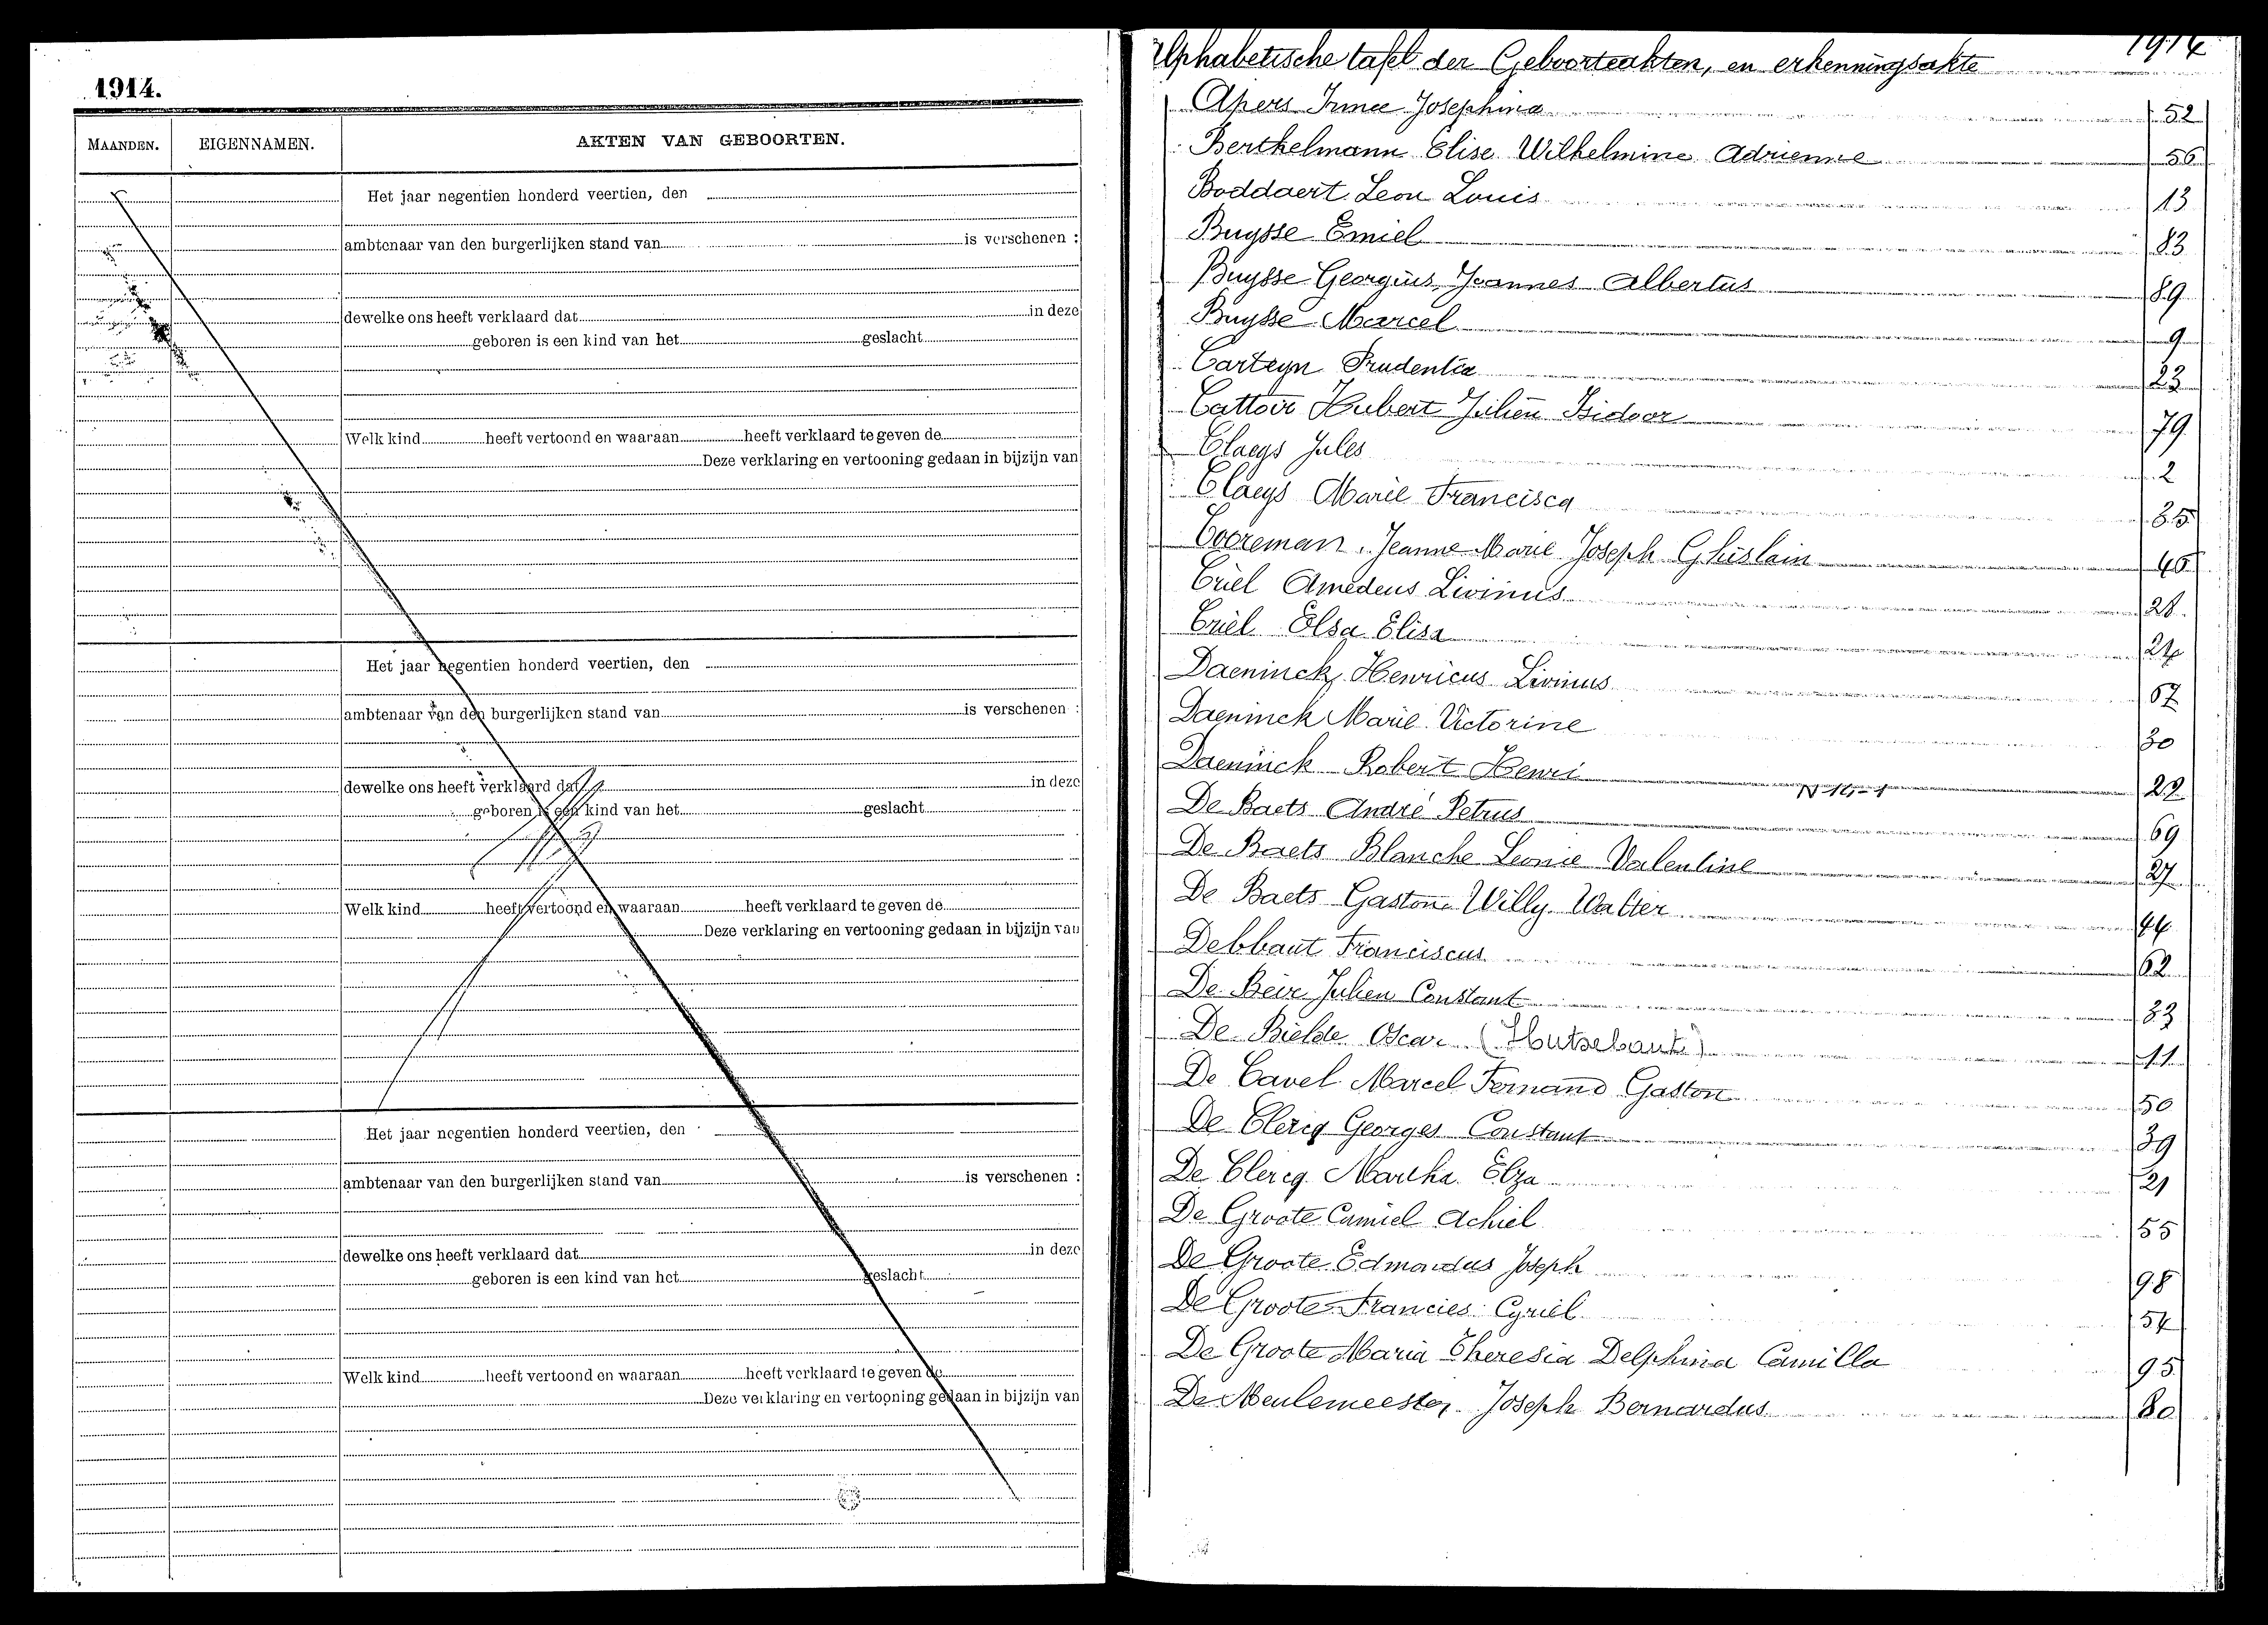 1914.
MAANDEN. EIGENNAMEN. AKTEN VAN GEBOORTEN.
Het jaar negentien honderd veertien, den
ambtenaar van den burgerlijken stand van is verschenen :
dewelke ons heeft verklaard dat in deze
geboren is een kind van het geslacht
Welk kind heeft vertoond en waaraan heeft verklaard te geven de
Deze verklaring en vertooning gedaan in bijzijn van
Het jaar negentien honderd veertien, den
ambtenaar van den burgerlijken stand van is verschenen :
dewelke ons heeft verklaard dat in deze
geboren is een kind van het geslacht
Welk kind heeft vertoond en waaraan heeft verklaard te geven de
Deze verklaring en vertooning gedaan in bijzijn van
Het jaar negentien honderd veertien, den
ambtenaar van den burgerlijken stand van is verschenen :
dewelke ons heeft verklaard dat in deze
geboren is een kind van het geslacht
Welk kind heeft vertoond en waaraan heeft verklaard te geven de
Deze verklaring en vertooning gedaan in bijzijn van
Alphabetische tafel der Geboorteakten, en erkenningsakte 1914
Apers Irmee Josephina 52
Berthelmann Elise Wilhelmine Adrienne 56
Boddaert Leon Louis 13
Buysse Emiel 83
Buysse Georgius Joannes Albertus 89
Buysse Marcel 9
Carteyn Prudentia 23
Cattoir Hubert Julien Isidoor 79
Claeys Jules 2
Claeys Marie Francisca 85
Cooreman Jeanne Marie Joseph Ghislain 40
Criel Amedeus Livinus 28
Criel Elsa Elisa 24
Daeninck Henricus Livinus 67
Daeninck Marie Victorine 30
Daeninck Robert Henri 22
N 14-1
De Baets André Petrus 69
De Baets Blanche Leonie Valentine 27
De Baets Gaston Willy Walter 44
Debbaut Franciscus 62
De Beir Julien Constant 33
De Bielde Oscar (Hutsebaut) 11
De Cavel Marcel Fernand Gaston 50
De Clercq Georges Constant 39
De Clercq Martha Elza 21
De Groote Camiel Achiel 55
De Groote Edmondus Joseph 98
De Groote Francies Cyriel 54
De Groote Maria Theresia Delphina Camilla 95
De Meulemeester Joseph Bernardus 80